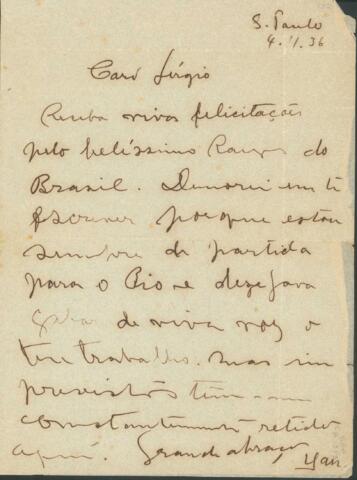 S. Paulo
4.11.36
Caro Sérgio
Receba vivas felicitações
pelo belíssimo Raizes do
Brasil. Demorei em te
escrever porque estou
sempre de partida
para o Rio e dezejava
de viva voz o
teu trabalho. Mas im-
previstos têm-me
constantemente retido
aqui. Grande abraço
Yan